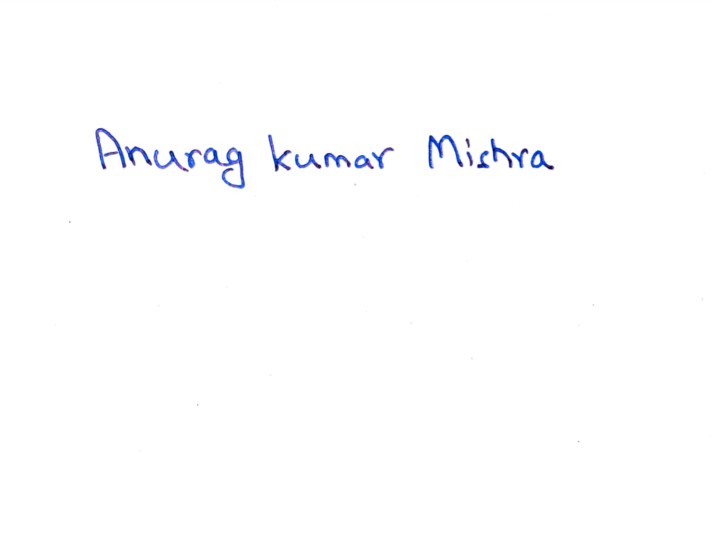 Anurag kumar Mishra